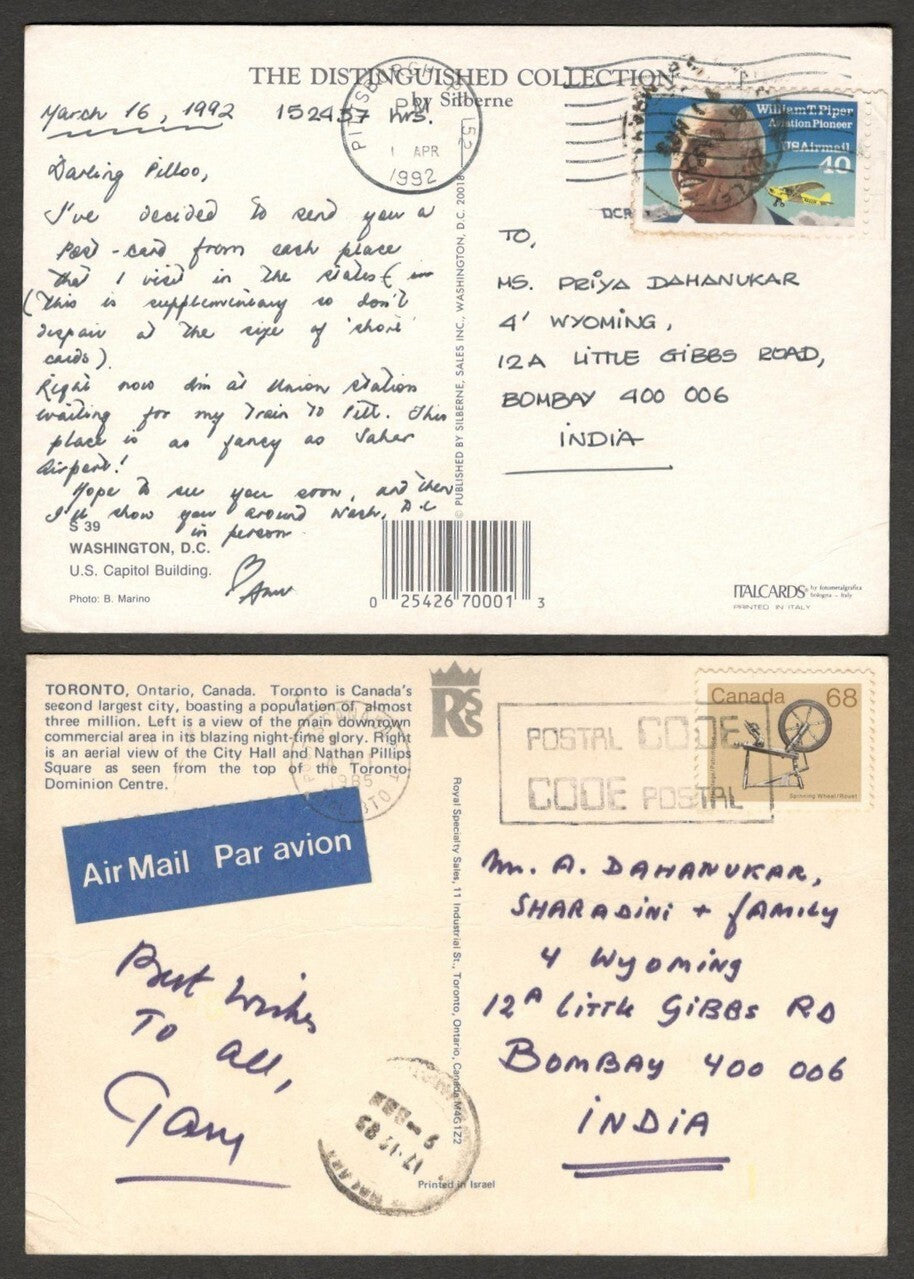 THE DISTINGUISHED COLLECTION
by Silberne
March 16, 1992 152437 hrs.
Darling Pilloo,
I've decided to send you a
post-card from each place
that I visit in the states (in
(this is supplementary so don't
despair at the size of 'shore'
cards)
Right now I'm at Union Station
waiting for my train to Pitt. This
place is as fancy as Sahar
Airport!
Hope to see you soon, and then
I'll show you around Wash, D.C
in person
S 39
WASHINGTON, D.C.
U.S. Capitol Building.
Photo: B. Marino
PITTSBURGH
PM
1 APR
1992
152
© PUBLISHED BY SILBERNE, SALES INC., WASHINGTON, D.C. 20018
0 25426 70001 3
William T. Piper
Aviation Pioneer
USAirmail
40
DCR
TO,
MS. PRIYA DAHANUKAR
4' WYOMING,
12A LITTLE GIBBS ROAD,
BOMBAY 400 006
INDIA
ITALCARDS® by fotometalgrafica
bologna - italy
PRINTED IN ITALY
TORONTO, Ontario, Canada. Toronto is Canada's
second largest city, boasting a population of almost
three million. Left is a view of the main downtown
commercial area in its blazing night-time glory. Right
is an aerial view of the City Hall and Nathan Phillips
Square as seen from the top of the Toronto
Dominion Centre.
1985
Air Mail Par avion
Best wishes
To all,
Royal Specialty Sales, 11 Industrial St., Toronto, Ontario, Canada M4G1Z2
17-12 85
Printed in Israel
POSTAL CODE
CODE POSTAL
Canada 68
Spinning Wheel/Rouet
Mr. A. DAHANUKAR,
SHARADINI + fAMILY
4 Wyoming
12A Little GIBBS RD
BOMBAY 400 006
INDIA